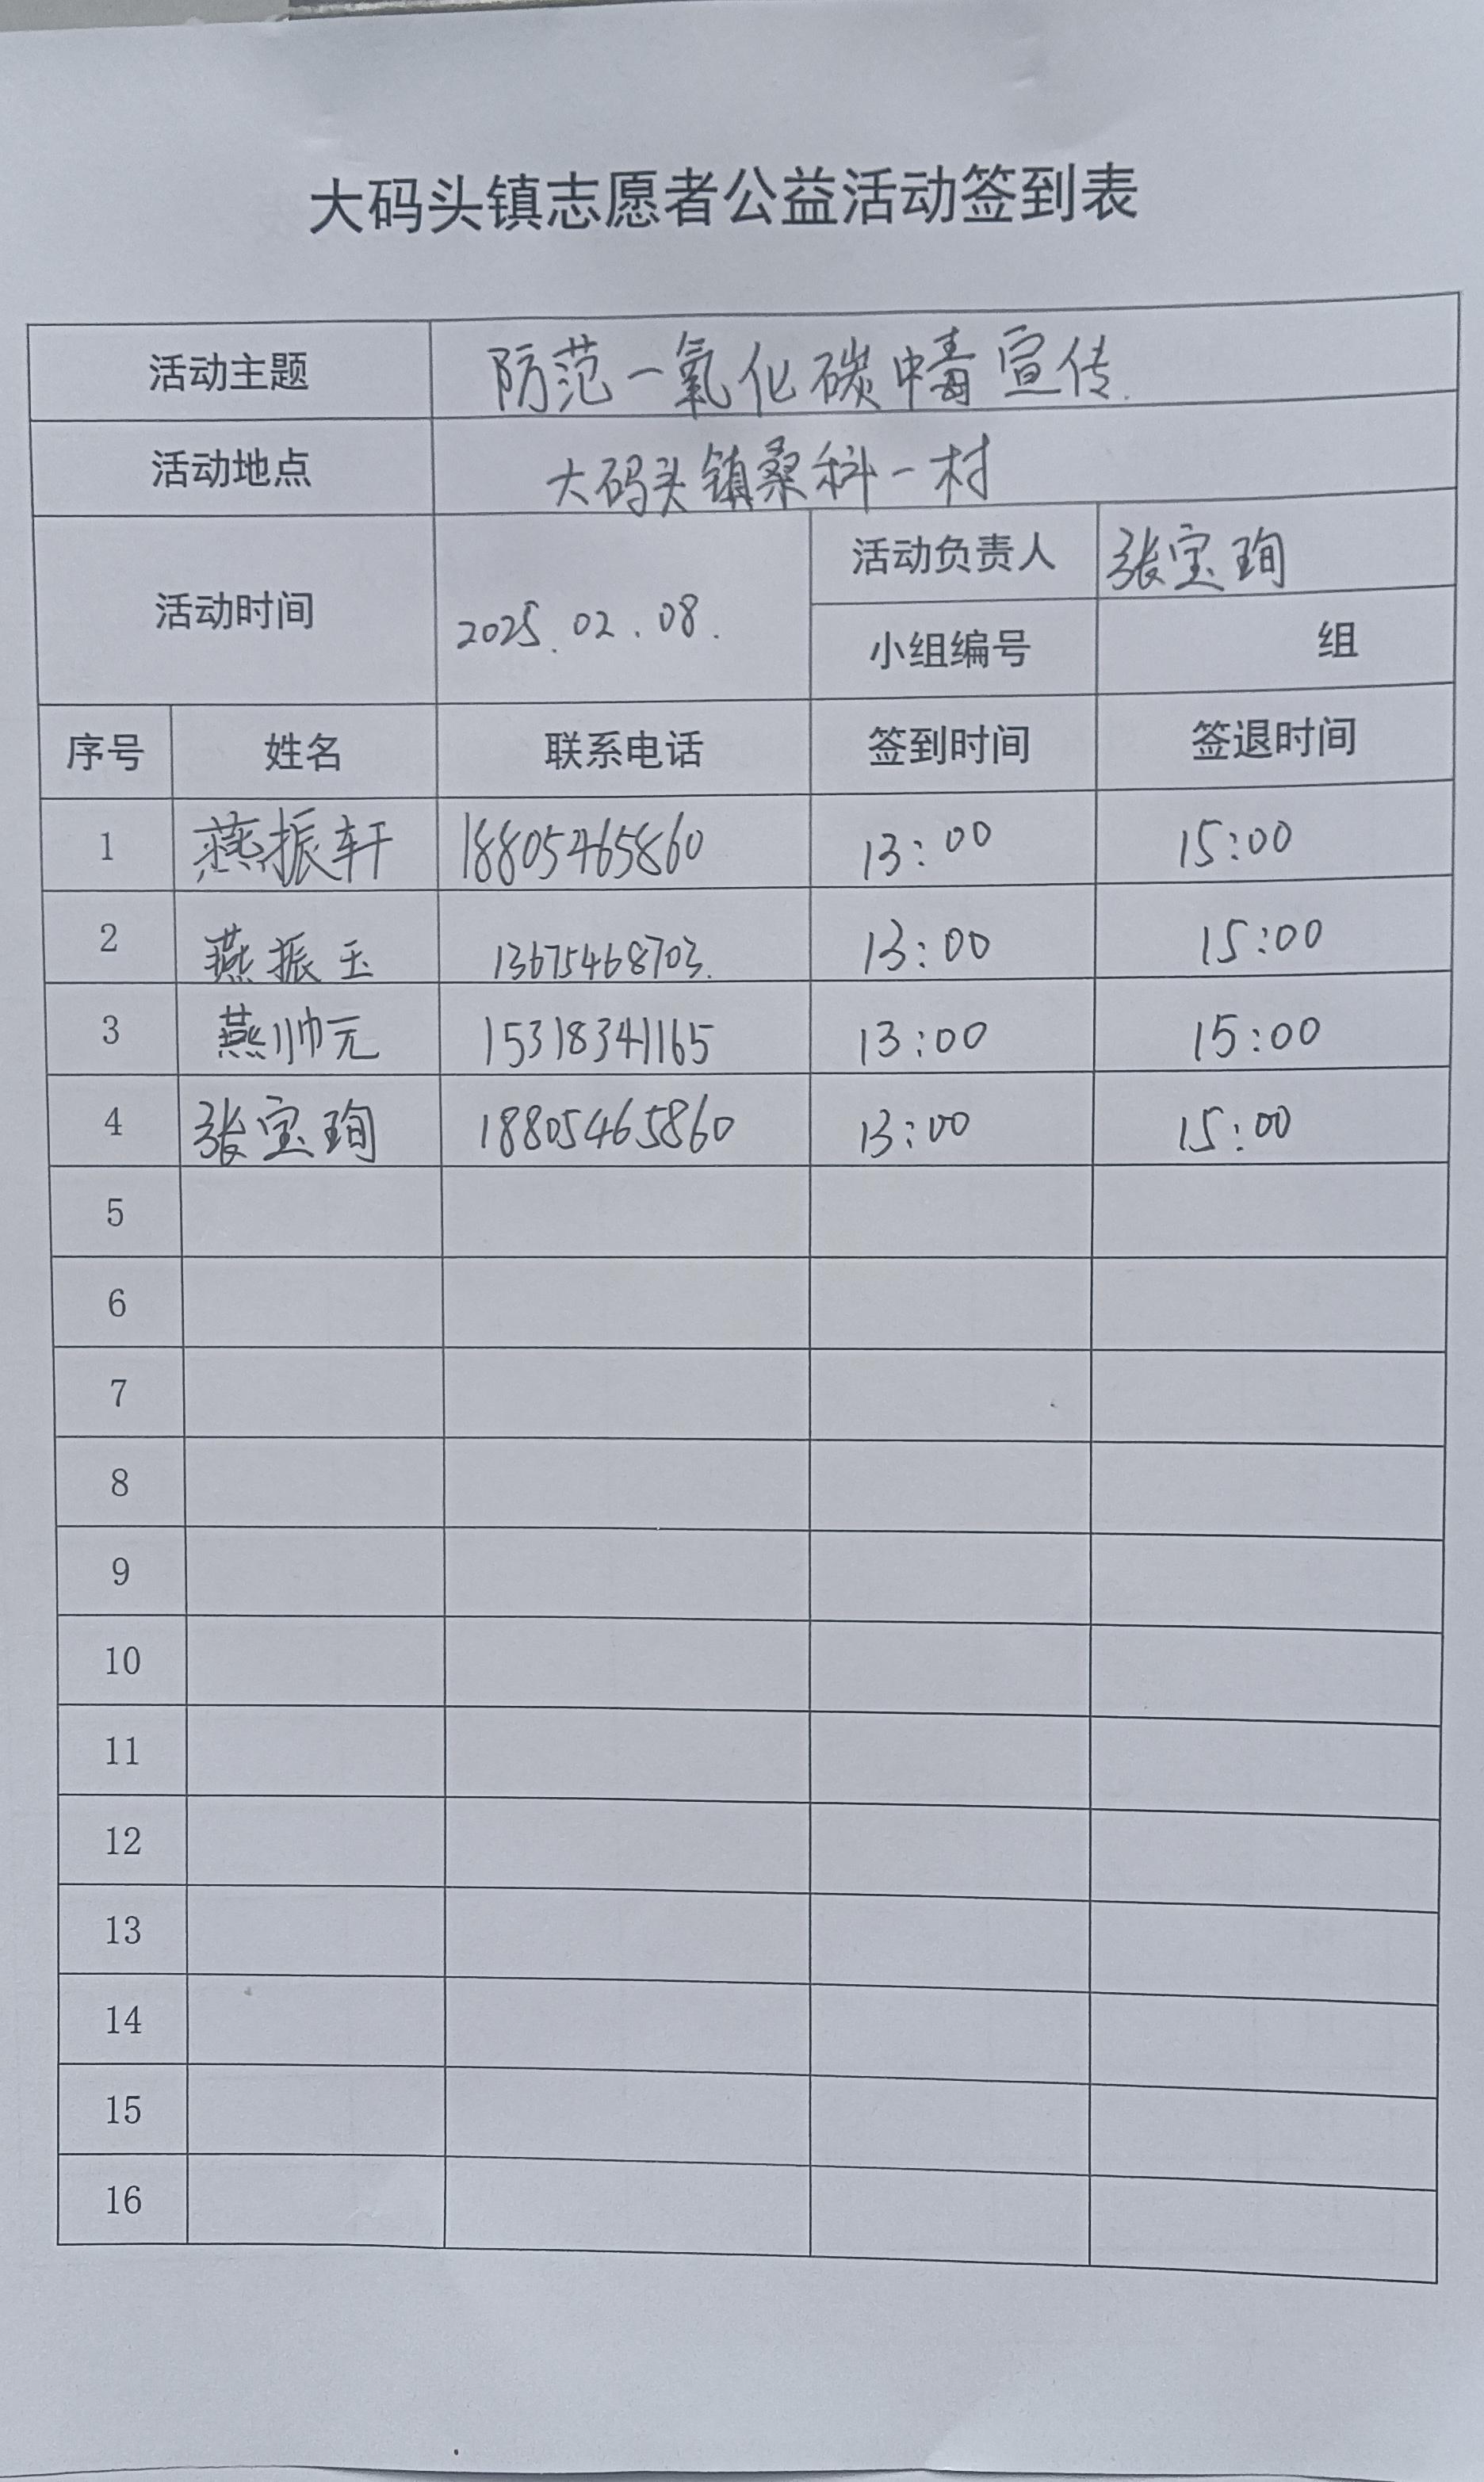 大码头镇志愿者公益活动签到表
活动主题 防范一氧化碳中毒宣传.
活动地点 大码头镇桑科一村
活动时间 2025.02.08. 活动负责人 张宝珣
小组编号 组
序号 姓名 联系电话 签到时间 签退时间
1 燕振轩 18805465860 13:00 15:00
2 燕振玉 13675468703. 13:00 15:00
3 燕帅元 15318341165 13:00 15:00
4 张宝珣 18805465860 13:00 15:00
5
6
7
8
9
10
11
12
13
14
15
16